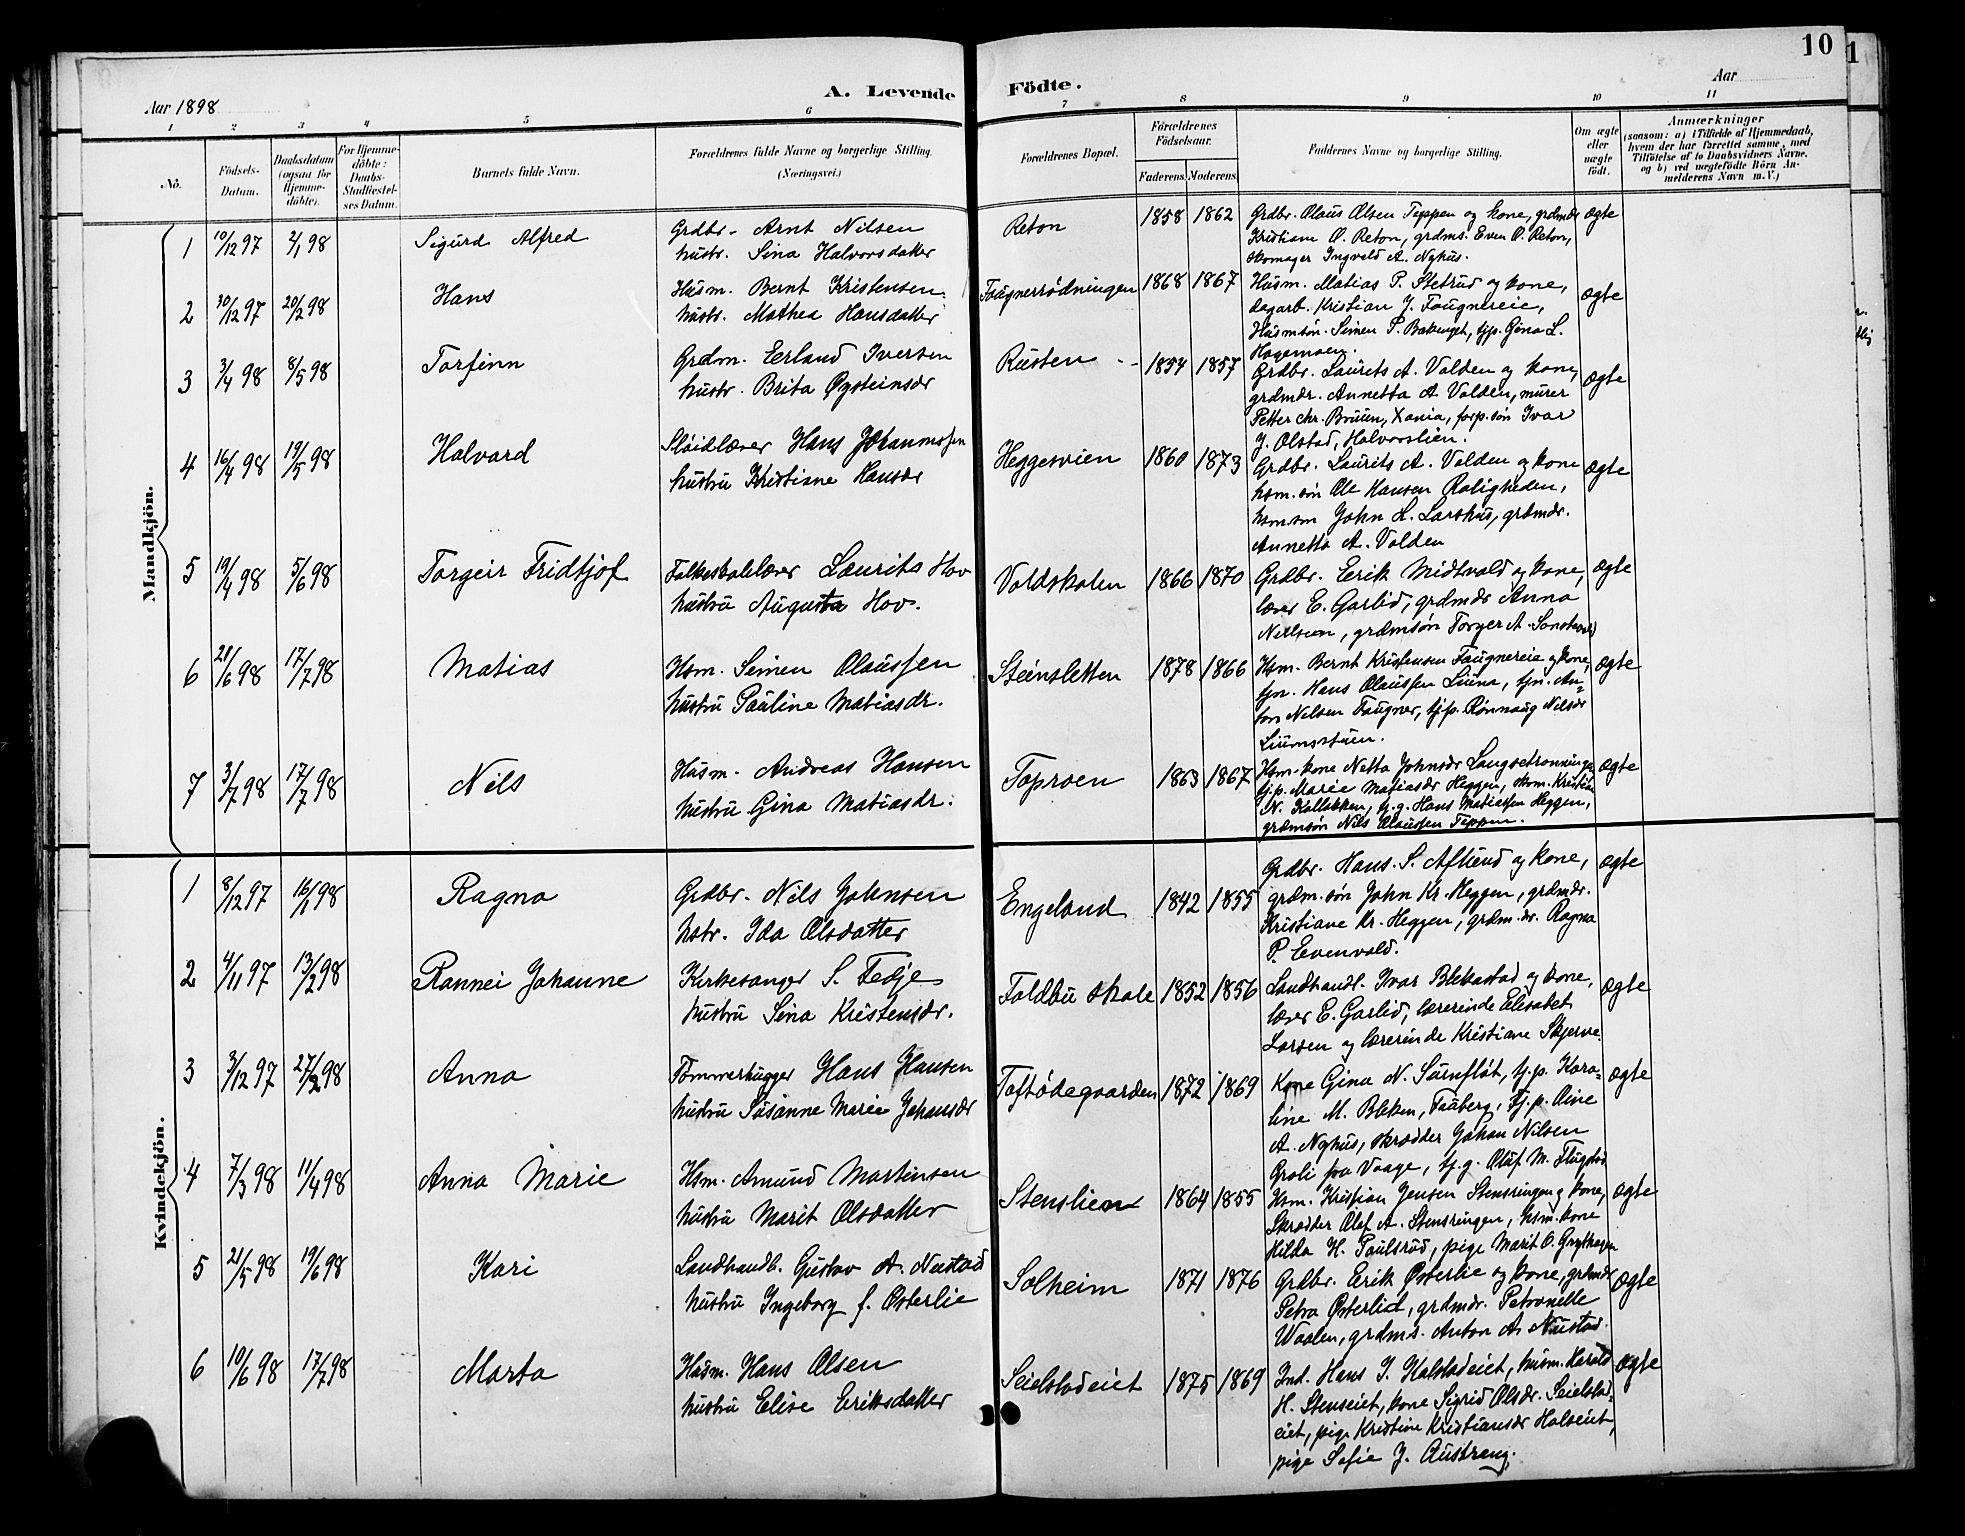 10
1
Aar 1898
A. Levende Födte.
Aar
1 2 3 4 5 6 7 8 9 10 11
No.
Födsels-Datum.
Daabsdatum (ogsaa for Hjemme-döbte).
For Hjemme-döbte: Daabs-Stadfæstel-ses Datum.
Barnets fulde Navn.
Forældrenes fulde Navne og borgerlige Stilling. (Næringsvei.)
Forældrenes Bopæl.
Forældrenes Födselsaar.
Faderens. Moderens.
Faddernes Navne og borgerlige Stilling.
Om ægte eller uægte födt.
Anmærkninger
(saasom: a) i Tilfælde af Hjemmedaab, hvem der har forrettet samme, med Tilföielse af to Daabsvidners Navne, og b) ved uægtefödte Börn An-melderens Navn m. V.)
Mandkjön.
1 10/12 97 2/1 98 Sigurd Alfred
Grdbr. Arnt Nilsen
hustr. Sina Halvorsdatter
Reton 1858 1862
Grdbr. Olaus Olsen Teppen og kone, grdmdr
Kristiane O. Reton, grdms. Even O. Reton,
skomager Ingvald A. Nyhus.
ægte
2 30/12 97 20/2 98 Hans
Husm. Bernt Kristensen
hustr. Mathea Hansdatter
Faugnerrødningen 1868 1867
Husm. Matias P. Stetrud og kone,
dagarb. Kristian J. Faugnereie,
Husmsøn. Simen P. Bakenget, tjp. Gina L.
Hagemoen.
ægte
3 3/4 98 8/5 98 Torfinn
Grdm. Erland Iversen
hustr. Brita Øysteinsdr
Rusten 1854 1857
Grdbr. Laurits A. Volden og kone,
grdmdr. Annetta A Volden, murer
Petter Chr. Bruun, Xania, forp. søn Ivar
J. Olstad, Halvorslien.
ægte
4 16/4 98 19/5 98 Halvard
Sløidlærer Hans Johannessen
hustru Kristiane Hansdr
Heggesvien 1860 1873
Grdbr. Laurits A. Volden og kone
hsm. søn Ole Hansen Roligheden,
hsm. søn John H. Larshus, grdmdr.
Annetta A. Volden
ægte
5 19/4 98 5/6 98 Torgeir Fridtjof
Folkeskolelærer Laurits Hov
hustru Augusta Hov.
Voldskolen 1866 1870
Grdbr. Erik Midtvold og kone,
lærer E. Garlid, grdmdr Anna
Neilsen, grdmsøn Torger A.
ægte
6 21/6 98 17/7 98 Matias
Hsm. Simen Olaussen
hustru Pauline Matiasdr.
Steinsletten 1878 1866
Hsm. Bernt Kristensen Faugnereie og kone,
tjn. Hans Olaussen Liun, tjn. An-
ton Nilsen Faugner, tjp. Rønnaug Nilsdr
Liumsstuen.
ægte
7 3/7 98 17/7 98 Nils
Husm. Andreas Hansen
hustru Gina Matiasdr.
Toproen 1863 1867
Hsm. kone Netta Johnsdr
tjp. Marie Matiasdr Heggen, skom. Kristian
N. Kalbakken, tj. g. Hans Matiassen Heggen,
grdmsøn Nils Olaussen Teppen.
ægte
Kvindekjön.
1 8/12 97 16/1 98 Ragna
Grdbr. Nils Johnsen
hstr. Ida Olsdatter
Engeland 1842 1855
Grdbr. Hans S. Aflund og kone,
grdm. søn John Kr. Heggen, grdmdr.
Kristiane Kr. Heggen, grdm. dr. Ragna
P. Evenvold.
ægte
2 4/11 97 13/2 98 Rannei Johanne
Kirkesanger S. Fedje
hustru Sina Kristensdr.
Foldbu skole 1852 1856
Landhandl. Ivar Blekastad og kone,
lærer E. Garlid, lærerinde Elisabet
Larsen og lærerinde Kristiane Skjerve
ægte
3 3/12 97 27/2 98 Anna
Tømmerhugger Hans Hansen
hustru Susanne Marie Johansdr
Toftødegaarden 1872 1869
Kone Gina N. Surnflöt, tj. p. Karo-
line M. Bleken, Faaberg, Tj. p. Oline
A. Nyhus, skrædder Johan Nilsen
Groli fra Vaage, tj. g. Oluf M. Flugstad
ægte
4 7/3 98 11/4 98 Anna Marie
Hsm. Amund Martinsen
hustru Marit Olsdatter
Stenslien 1864 1855
Hsm. Kristian Jensen Stensringen og kone,
Skrædder Olaf A. Stensringen, hsm. kone
Hilda H. Paulsrød, pige Marit O.
ægte
5 21/5 98 19/6 98 Kari
Landhandl. Gustav A. Neustad
hustru Ingeborg f. Østerlie
Solheim 1871 1876
Grdbr. Erik Østerlie og kone, grdmdr
Petra Østerlid, grdmdr. Petronelle
Waalen, grdms. Anton A. Neustad.
ægte
6 10/6 98 17/7 98 Marta
Husm. Hans Olsen
hustru Elise Eriksdatter
Seielstadeiet 1875 1869
Ind. Hans J. Kalstadeiet, husm. Harald
H. Stenseiet, kone Sigrid Olsdr. Seielstad-
eiet, pige Kristine Kristiansdr Holseiet,
pige Sofie J. Austreng.
ægte